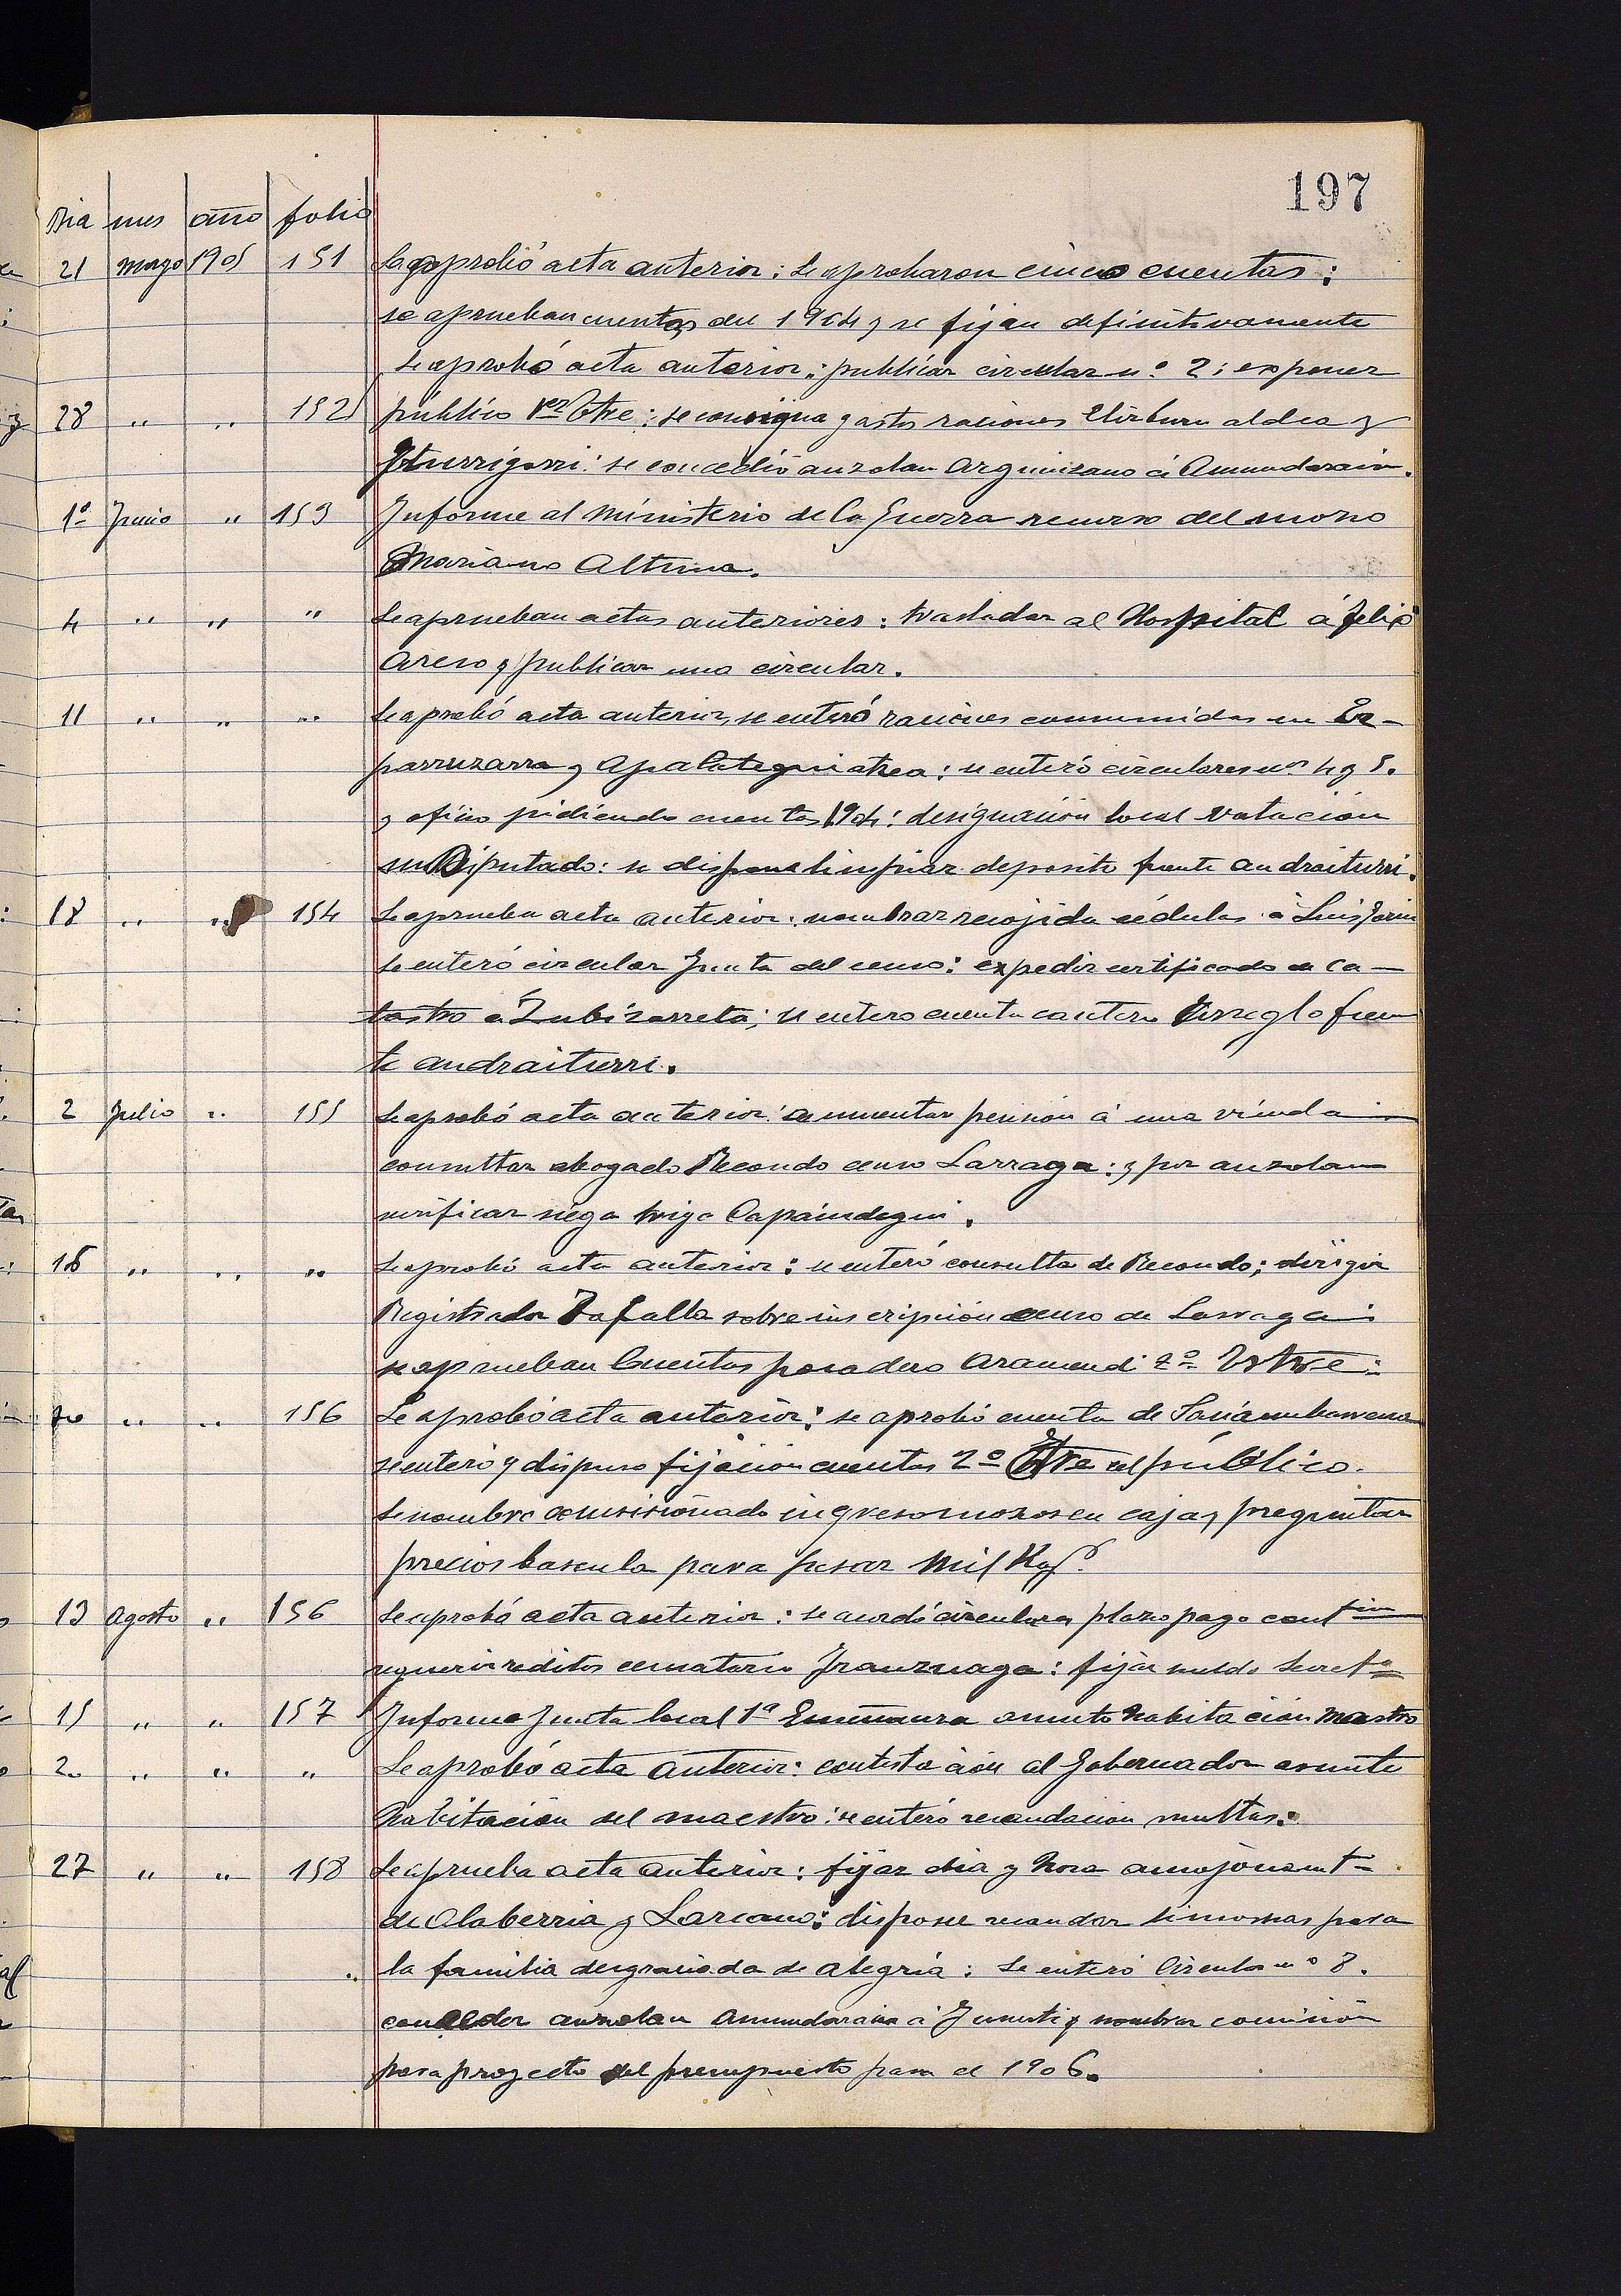 197
Dia mes año folio
21 Mayo 1905 151 Se aprobó acta anterior: se aprobaron cinco cuentas:
se aprueban cuentas del 1904 y se fijan definitivamente
Se aprobó acta anterior: publicar circular nº 2: exponer
28 " " 152 público 1er Ttre: se consigna gastos raciones Elizburu aldea y
Yturrigorri: se concedió auzolan Arguinzano á Amundarain.
1º Junio " 153 Informe al Ministerio de la Guerra recurso del mozo
Mariano Altuna.
4 " " " Se aprueban actas anteriores: trasladar al Hospital á Felix
Areso y publicar una circular.
11 " " " Se aprobó acta anterior, se enteró raciones consumidas en
parruzarra y Apalategui atzea: se enteró circulares nos 4 y 5.
y oficio pidiendo cuentas 1904: designación local votación
un Diputado: se dispone limpiar deposito fuente andraiturri.
18 " " 154 Se aprueba acta anterior: nombrar recojida cédulas á Luis
se enteró circular Junta del censo: expedir certificado de ca-
tastro a Zubizarreta; se entero cuenta cantero arreglo fuen
te andraiturri.
2 Julio " 155 Se aprobó acta anterior: aumentar pensión á una viuda
consultar abogado Recondo censo Larraga: y por auzolan
verificar siega trigo Capaindegui.
16 " " " Se aprobó acta anterior: se enteró consulta de Recondo; dirigir
Registrador Tafalla sobre inscripción censo de Larraga:
se aprueban Cuentas posadero Aramendi 2º Trtre:
30 " " 156 Se aprobó acta anterior: se aprobó cuenta de
se enteró y dispuso fijación cuentas 2º Ttre al público.
Se nombró comisionado ingreso mozos en caja y preguntar
precios bascula para pesar mil Kgs.
13 Agosto " 156 Se aprobó acta anterior: se acordó circular plazo pago contin
requerir reditos censatario Iraunzuaga: fijar sueldo Secretº
15 " " 157 Informe Junta local 1ª Enseñanza asunto habitación Maestro
20 " " " Se aprobó acta anterior: contestación al Gobernador asunto
habitación del maestro: se enteró recaudacion multas:
27 " " 158 Se aprueba acta anterior: fijar dia y hora amojonamt-
de Olaberria y Lazcano: dispone recaudar limosnas para
la familia desgraciada de Alegria: Se enteró Circular nº 8.
conceder auzolan Amundarain á y nombrar comisión
para proyecto del presupuesto para el 1906.